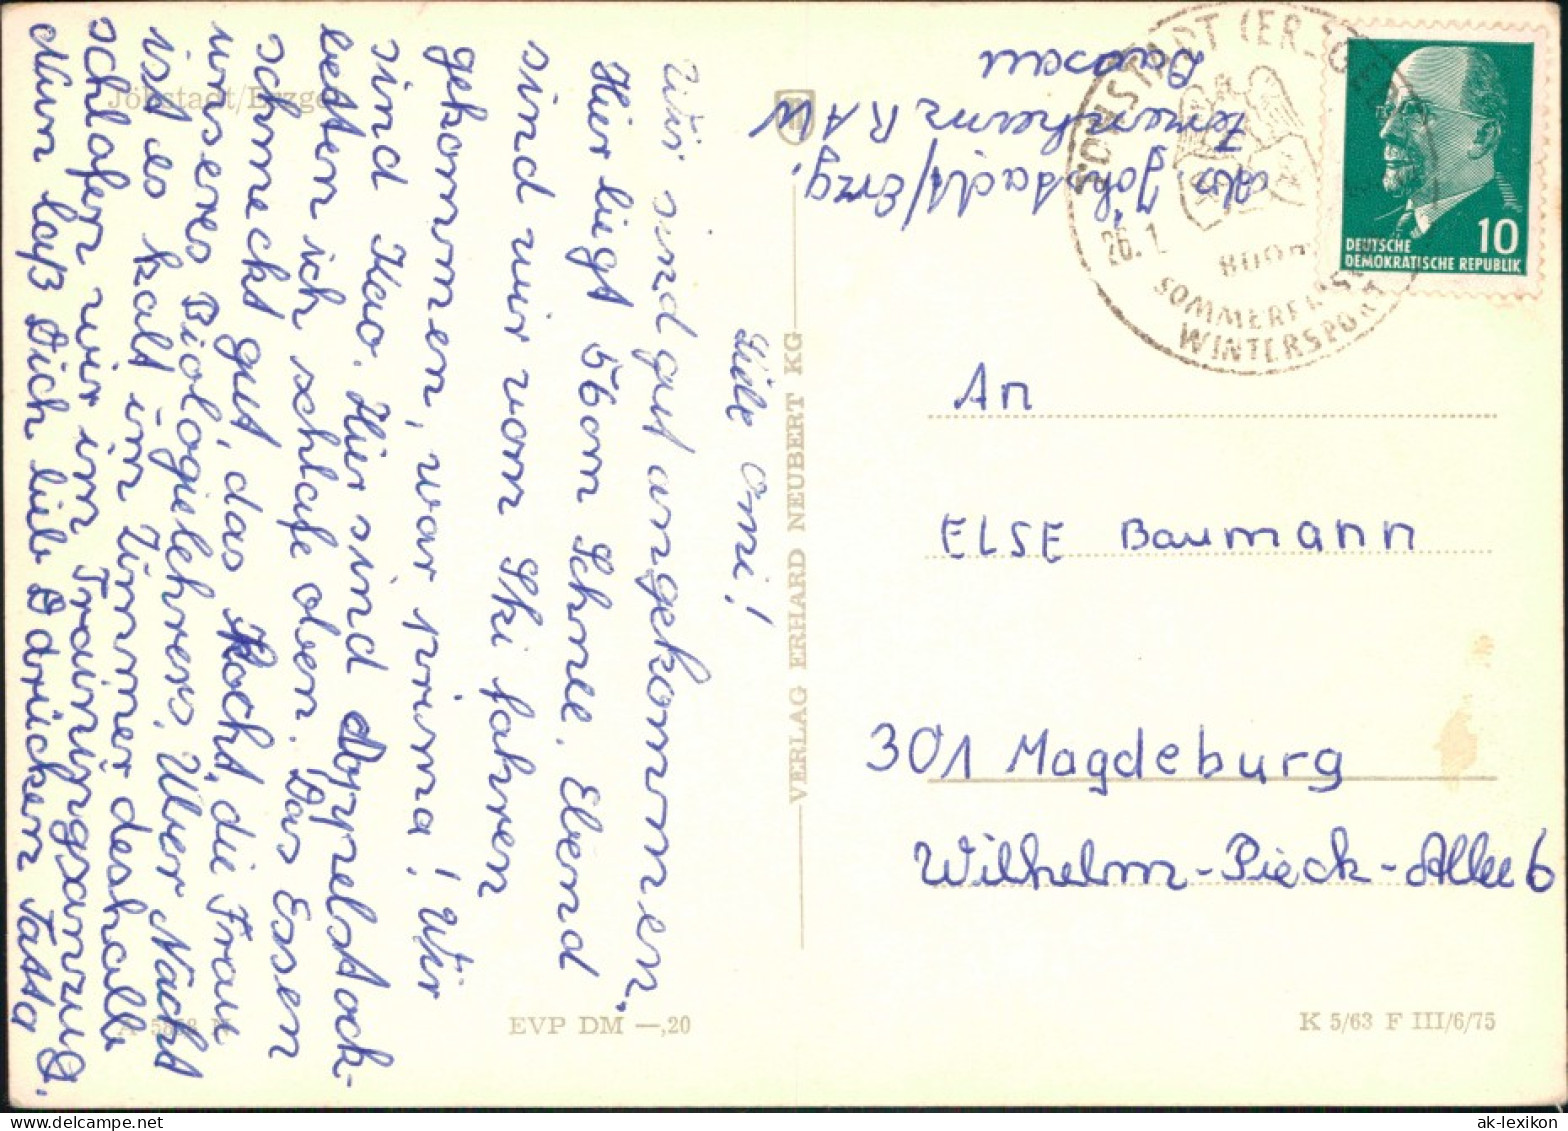 Liebe Omi!
Wir sind gut angekommen.
Hier liegt 56cm Schnee. Ebend
sind wir vom Ski fahren
gekommen, war prima! Wir
sind Kao. Hier sind Doppelstock-
betten ich schlafe oben. Das Essen
schmeckt gut, das Kocht, die Frau
unseres Biologielehrers. Über Nacht
ist es kalt im Zimmer deshalb
schlafen wir im Trainingsanzug.
Nun laß Dich lieb Ddrücken
Jöhstadt/Erzgeb.
Jöhstadt/Erzg.
RAW
JÖHSTADT (ERZGEB
26. 1.
800m
SOMMERFRISCHE
WINTERSPORT
10
DEUTSCHE
DEMOKRATISCHE REPUBLIK
An
ELSE Baumann
301 Magdeburg
Wilhelm-Pieck-Allee 6
VERLAG ERHARD NEUBERT KG
EVP DM —,20
K 5/63 F III/6/75
ak-lexikon